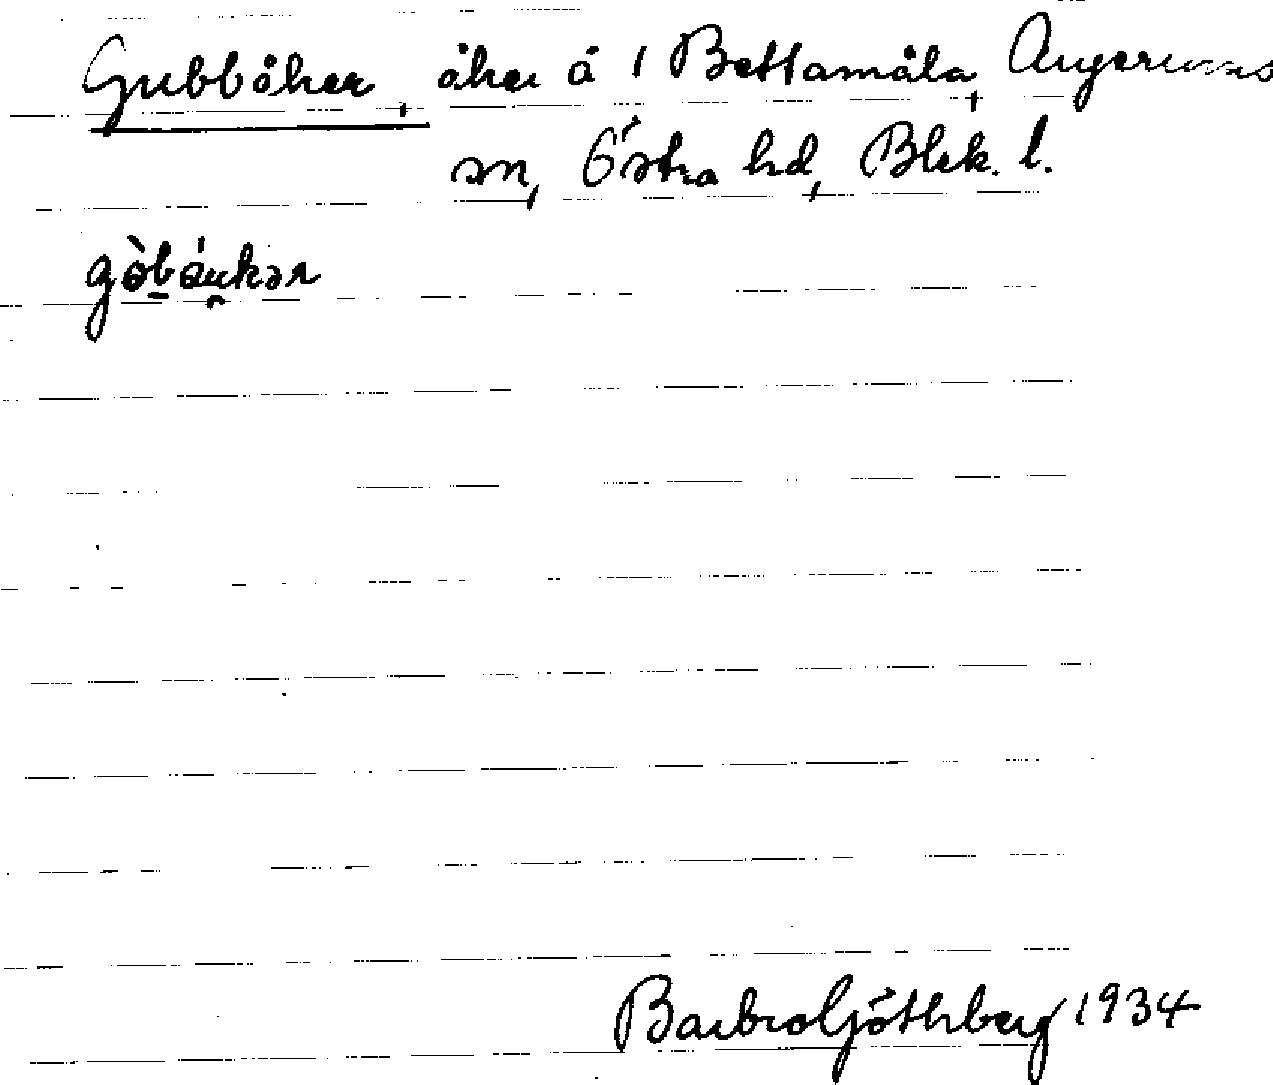 Gubbåker, åker å 1 Bettamåla, Augerums
sn, Östra hd, Blek. l.
gòbáukər
Barbro Göthberg 1934